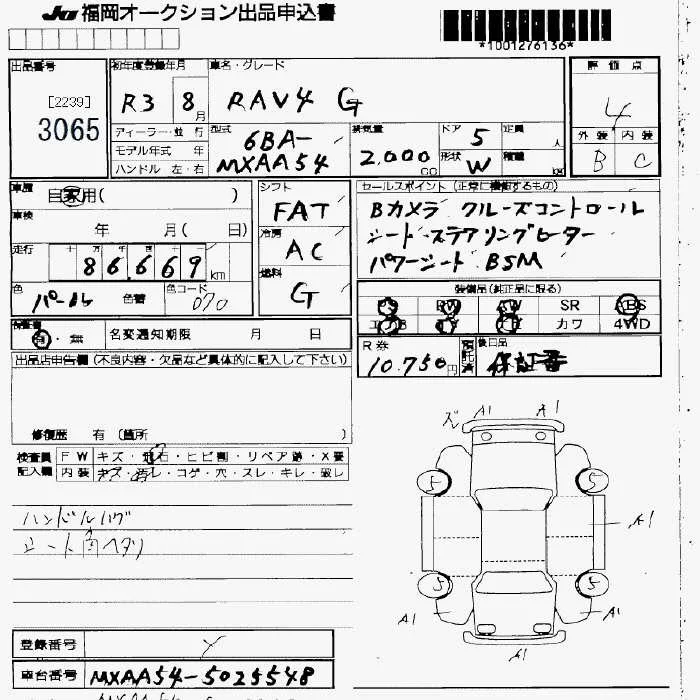 JU 福岡オークション出品申込書
*1001276136*
出品番号
[2239]
3065
初年度登録年月
R3 8月
車名・グレード
RAV4 G
評価点
4
外装 内装
B C
ディーラー・並行
モデル年式 年
ハンドル 左・右
型式
6BA-
MXAA54
排気量
2.000cc
ドア 5
定員 人
形状 W
積載
車歴 自家用( )
車検 年 月( 日)
走行 十 万 千 百 十 一
86.669km
色 パール 色替
色コード 070
シフト
FAT
冷房
AC
燃料
G
セールスポイント(正常に機能するもの)
Bカメラ クルーズコントロール
シートステアリングヒーター
パワーシート BSM
装備品(純正品に限る)
PS PW AW SR ABS
カワ 4WD
有・無
名変通知期限 月 日
R券
10.750円
預託済
後日品
保証書
出品店申告欄(不良内容・欠品など具体的に記入して下さい)
修復歴 有 (箇所 )
検査員記入欄
FW キズ・飛石・ヒビ割・リペア跡・X要
内装 キズ・汚レ・コゲ・穴・スレ・キレ・破レ
ハンドルハゲ
シート角ヘタリ
ズレ A1 A1
5 5
A1
5 5
A1 A1
A1
登録番号
車台番号 MXAA54-5025548